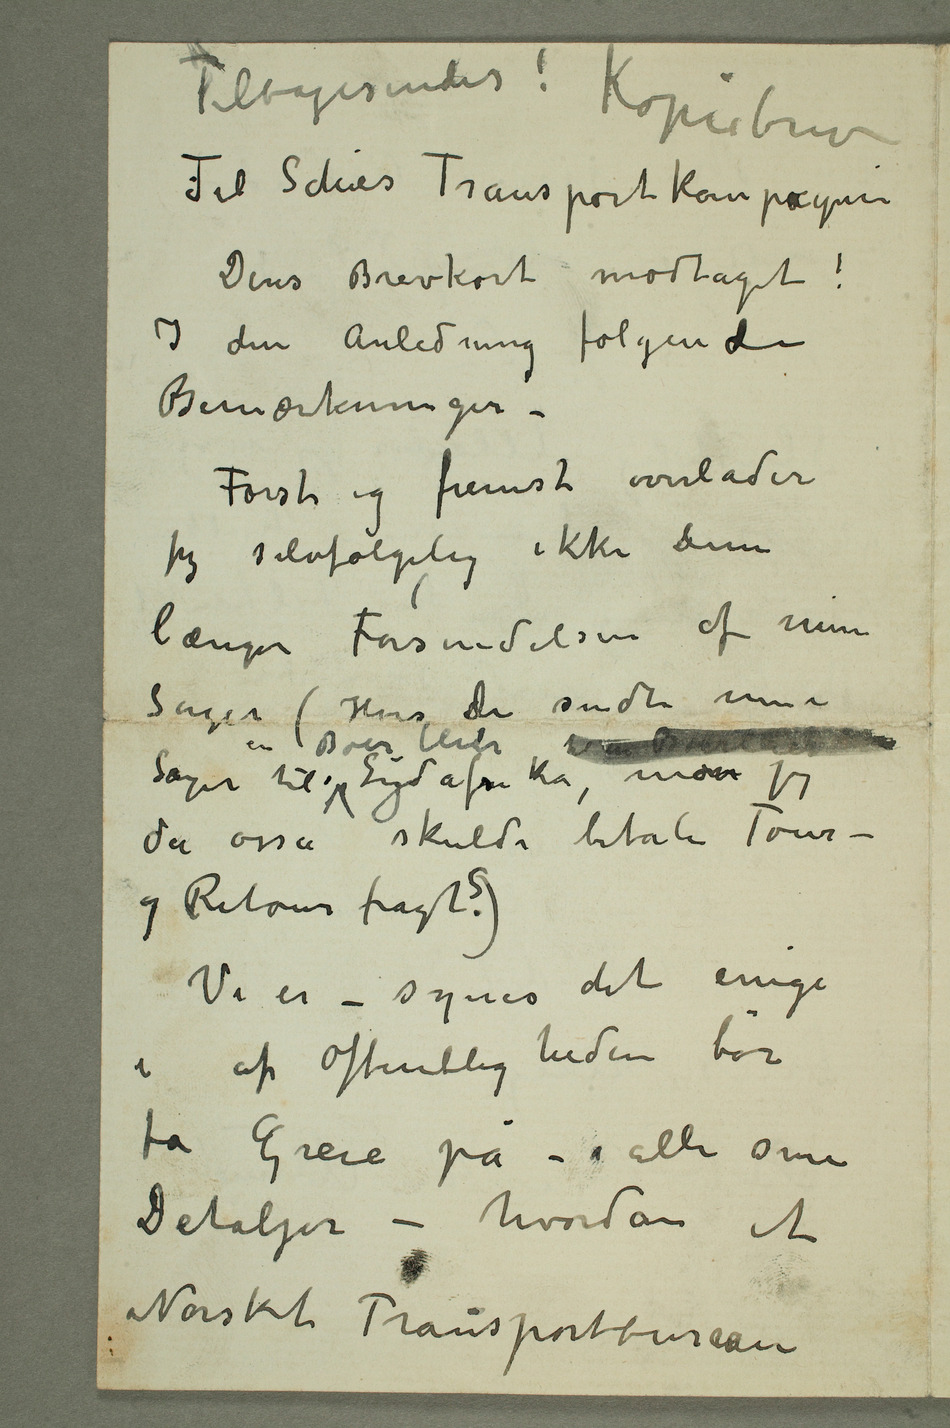 Tilbagesendes! Kopiebrev
Til Schies Transportkompagni
Deres Brevkort modtaget!
I den Anledning følgende
Bemærkninger –
Først og fremst overlader
jeg selvfølgelig ikke dem
længer Forsendelsen af mine
Sager (Hvis de sendte mine
en Boer eller
Sager til Sydafrika, mon jeg
da osså skulde betale Tour –
og Retourfragt?)
Vi er – synes det enige
i at Offentligheden bør
få Greie på – i alle sine
Detaljer – hvordan et
Norskt Transportbureau